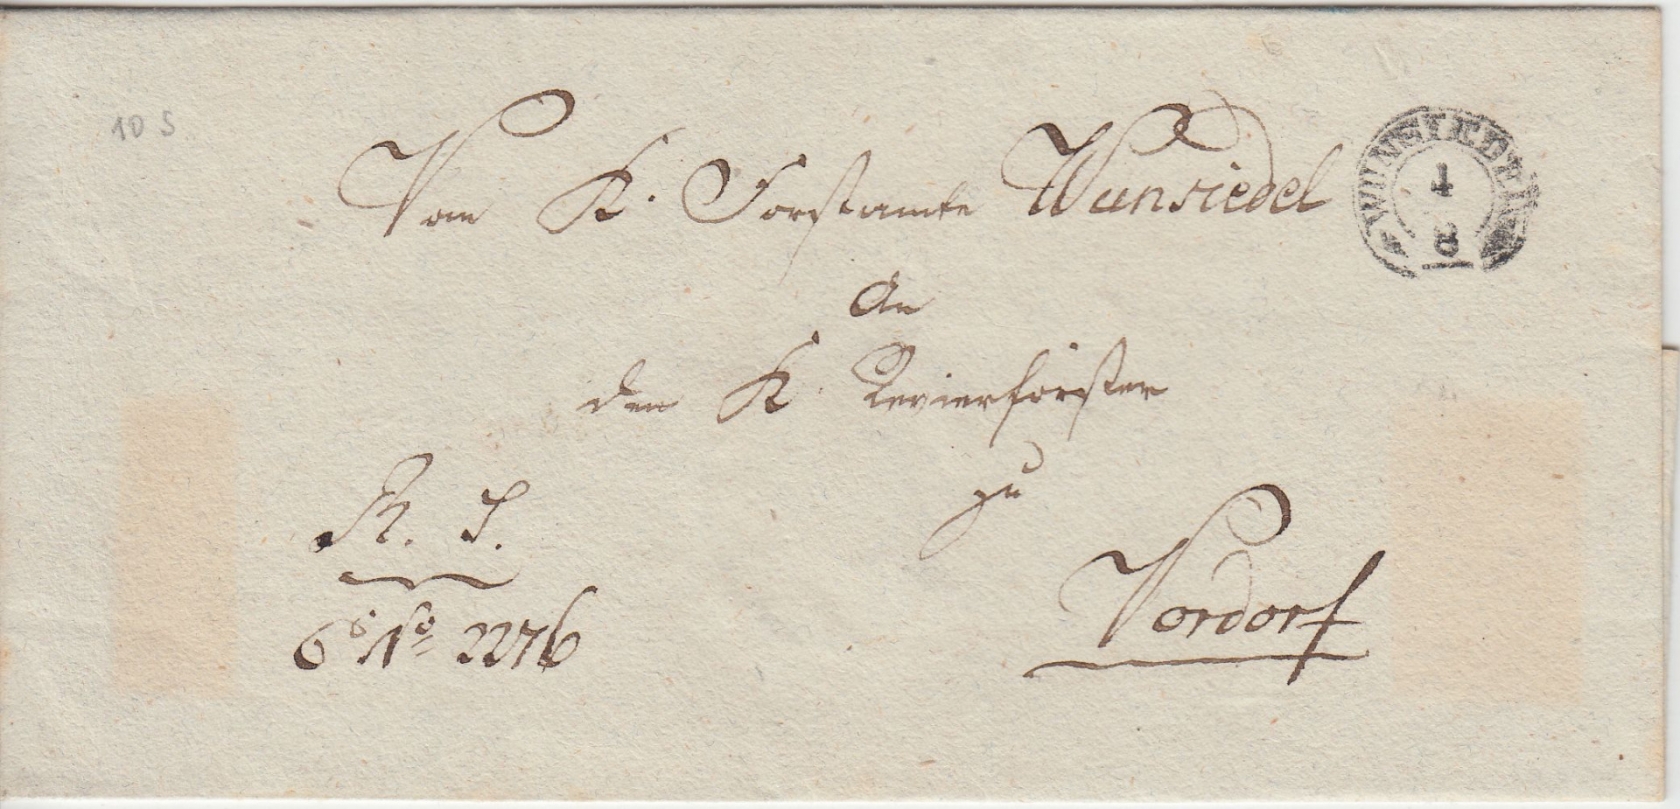 10 S
Vom K. Forstamte Wunsiedel
WUNSIEDEL
4
8
An
den K. Revierförster
zu
R. S.
Vordorf
No 2276